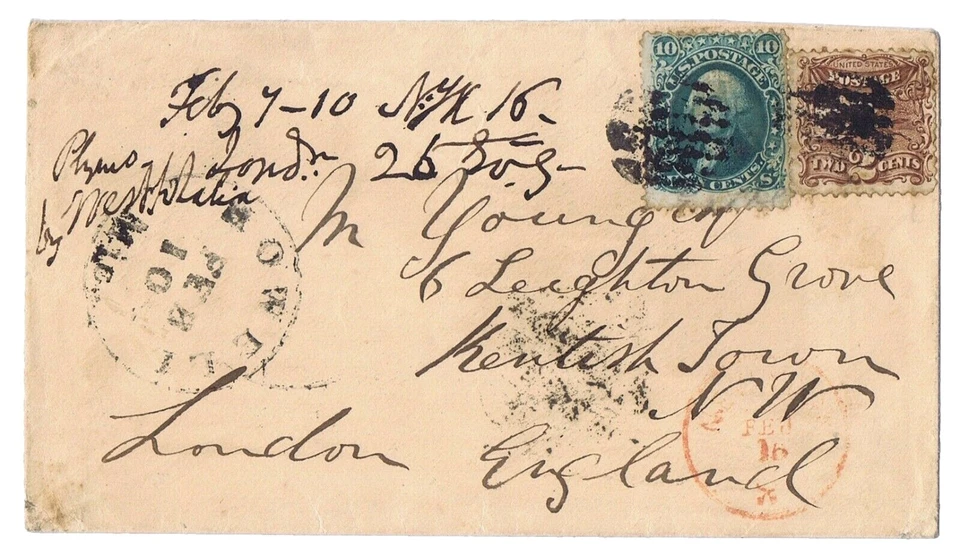 Feby 7-10 N.Y.K 16-
Plymo Lond.n 25
by Westphalia
M Young
6 Leighton Grove
Kentish Town
N W
London England
10 U.S. POSTAGE 10
CENTS
UNITED STATES
POSTAGE
TWO 2 CENTS
LOWELL
FEB
10
FEB
16